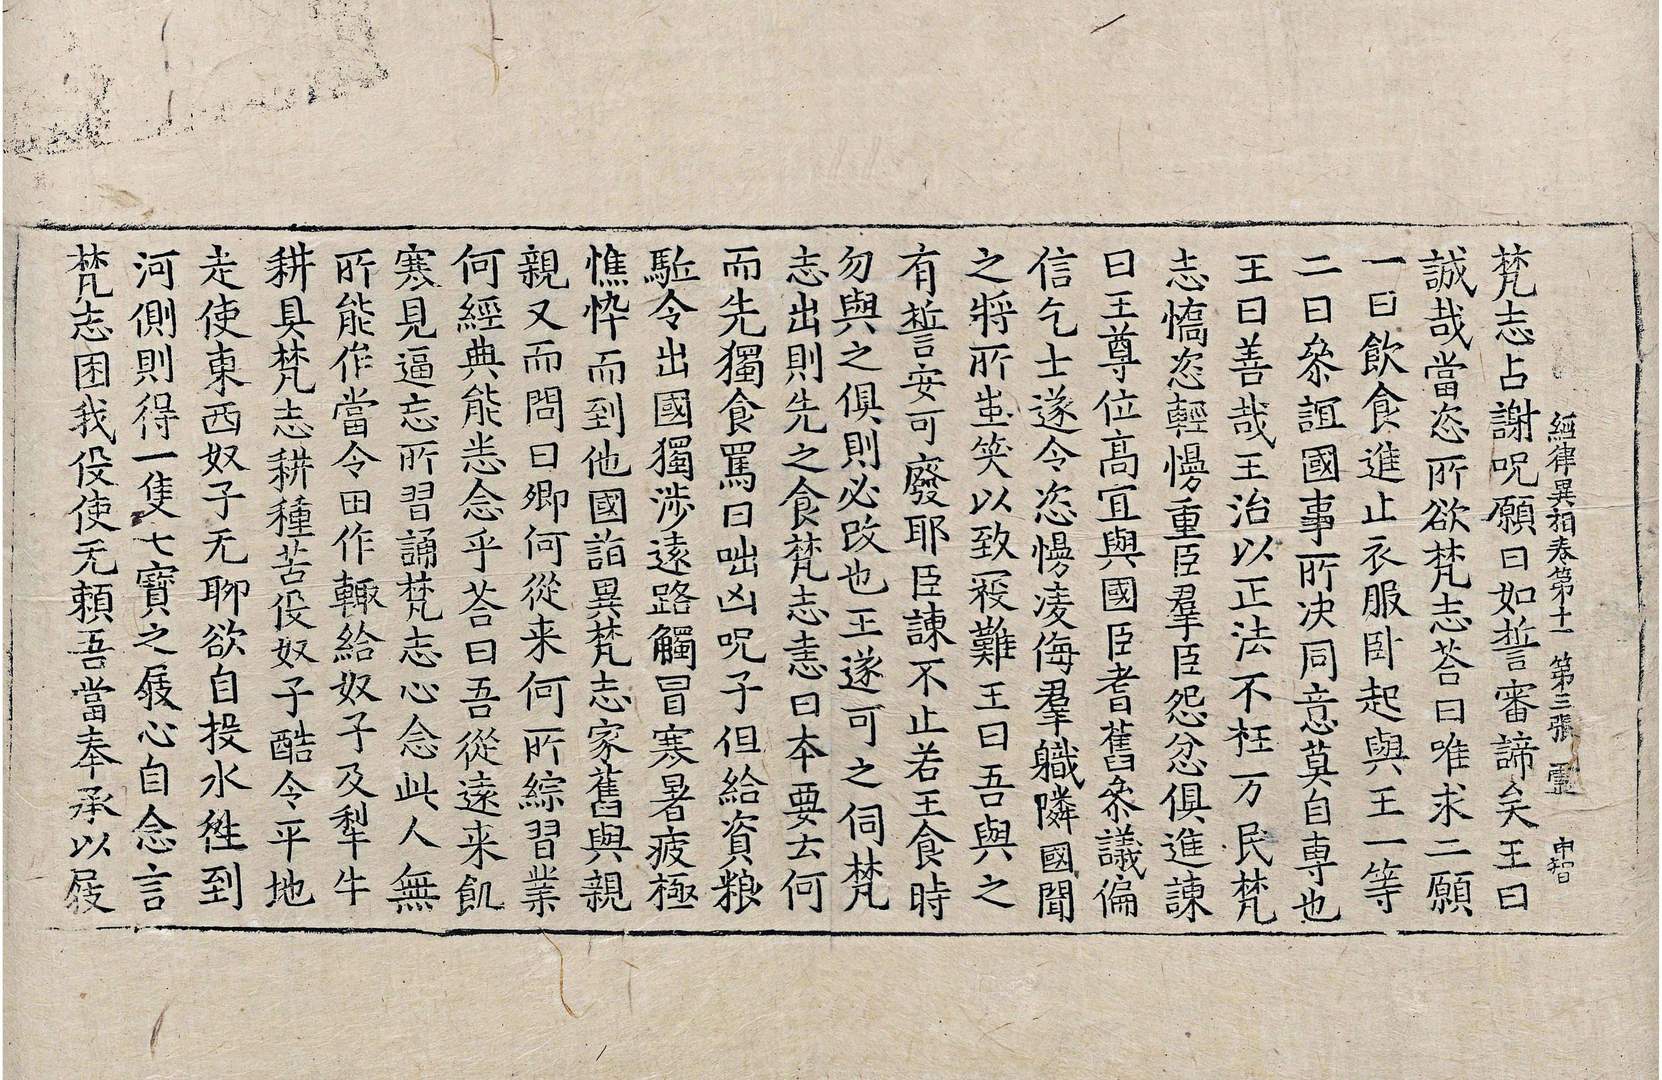 經律異相卷第十一 第三張 靈 申智
梵志占謝呪願曰如誓審諦矣王曰
誠哉當恣所欲梵志荅曰唯求二願
一曰飲食進止衣服卧起與王一等
二曰叅誼國事所决同意莫自専也
王曰善哉王治以正法不枉万民梵
志憍恣輕慢重臣羣臣怨忿俱進諫
曰王尊位高宜與國臣耆舊叅議偏
信乞士遂令恣慢凌侮羣職隣國聞
之將所蚩笑以致寇難王曰吾與之
有誓安可廢耶臣諫不止若王食時
勿與之俱則必改也王遂可之伺梵
志出則先之食梵志恚曰本要云何
而先獨食罵曰咄凶呪子但給資粮
駈令出國獨涉遠路觸冒寒暑疲極
憔悴而到他國詣異梵志家舊與親
親又而問曰卿何從来何所綜習業
何經典能悉念乎荅曰吾從遠来飢
寒見逼忘所習誦梵志心念此人無
所能作當令田作輙給奴子及犁牛
耕具梵志耕種苦役奴子酷令平地
走使東西奴子无聊欲自投水徃到
河側則得一隻七寶之屐心自念言
梵志困我役使无頼吾當奉承以屐